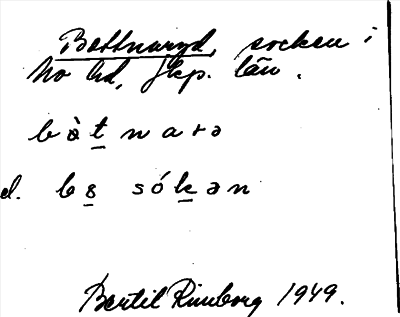 Bottnaryd, socken i
Mo hd, Jkp. län.
bòt̲naɾə
el. bs̲ sók̲ən
Bertil Rimborg 1949.